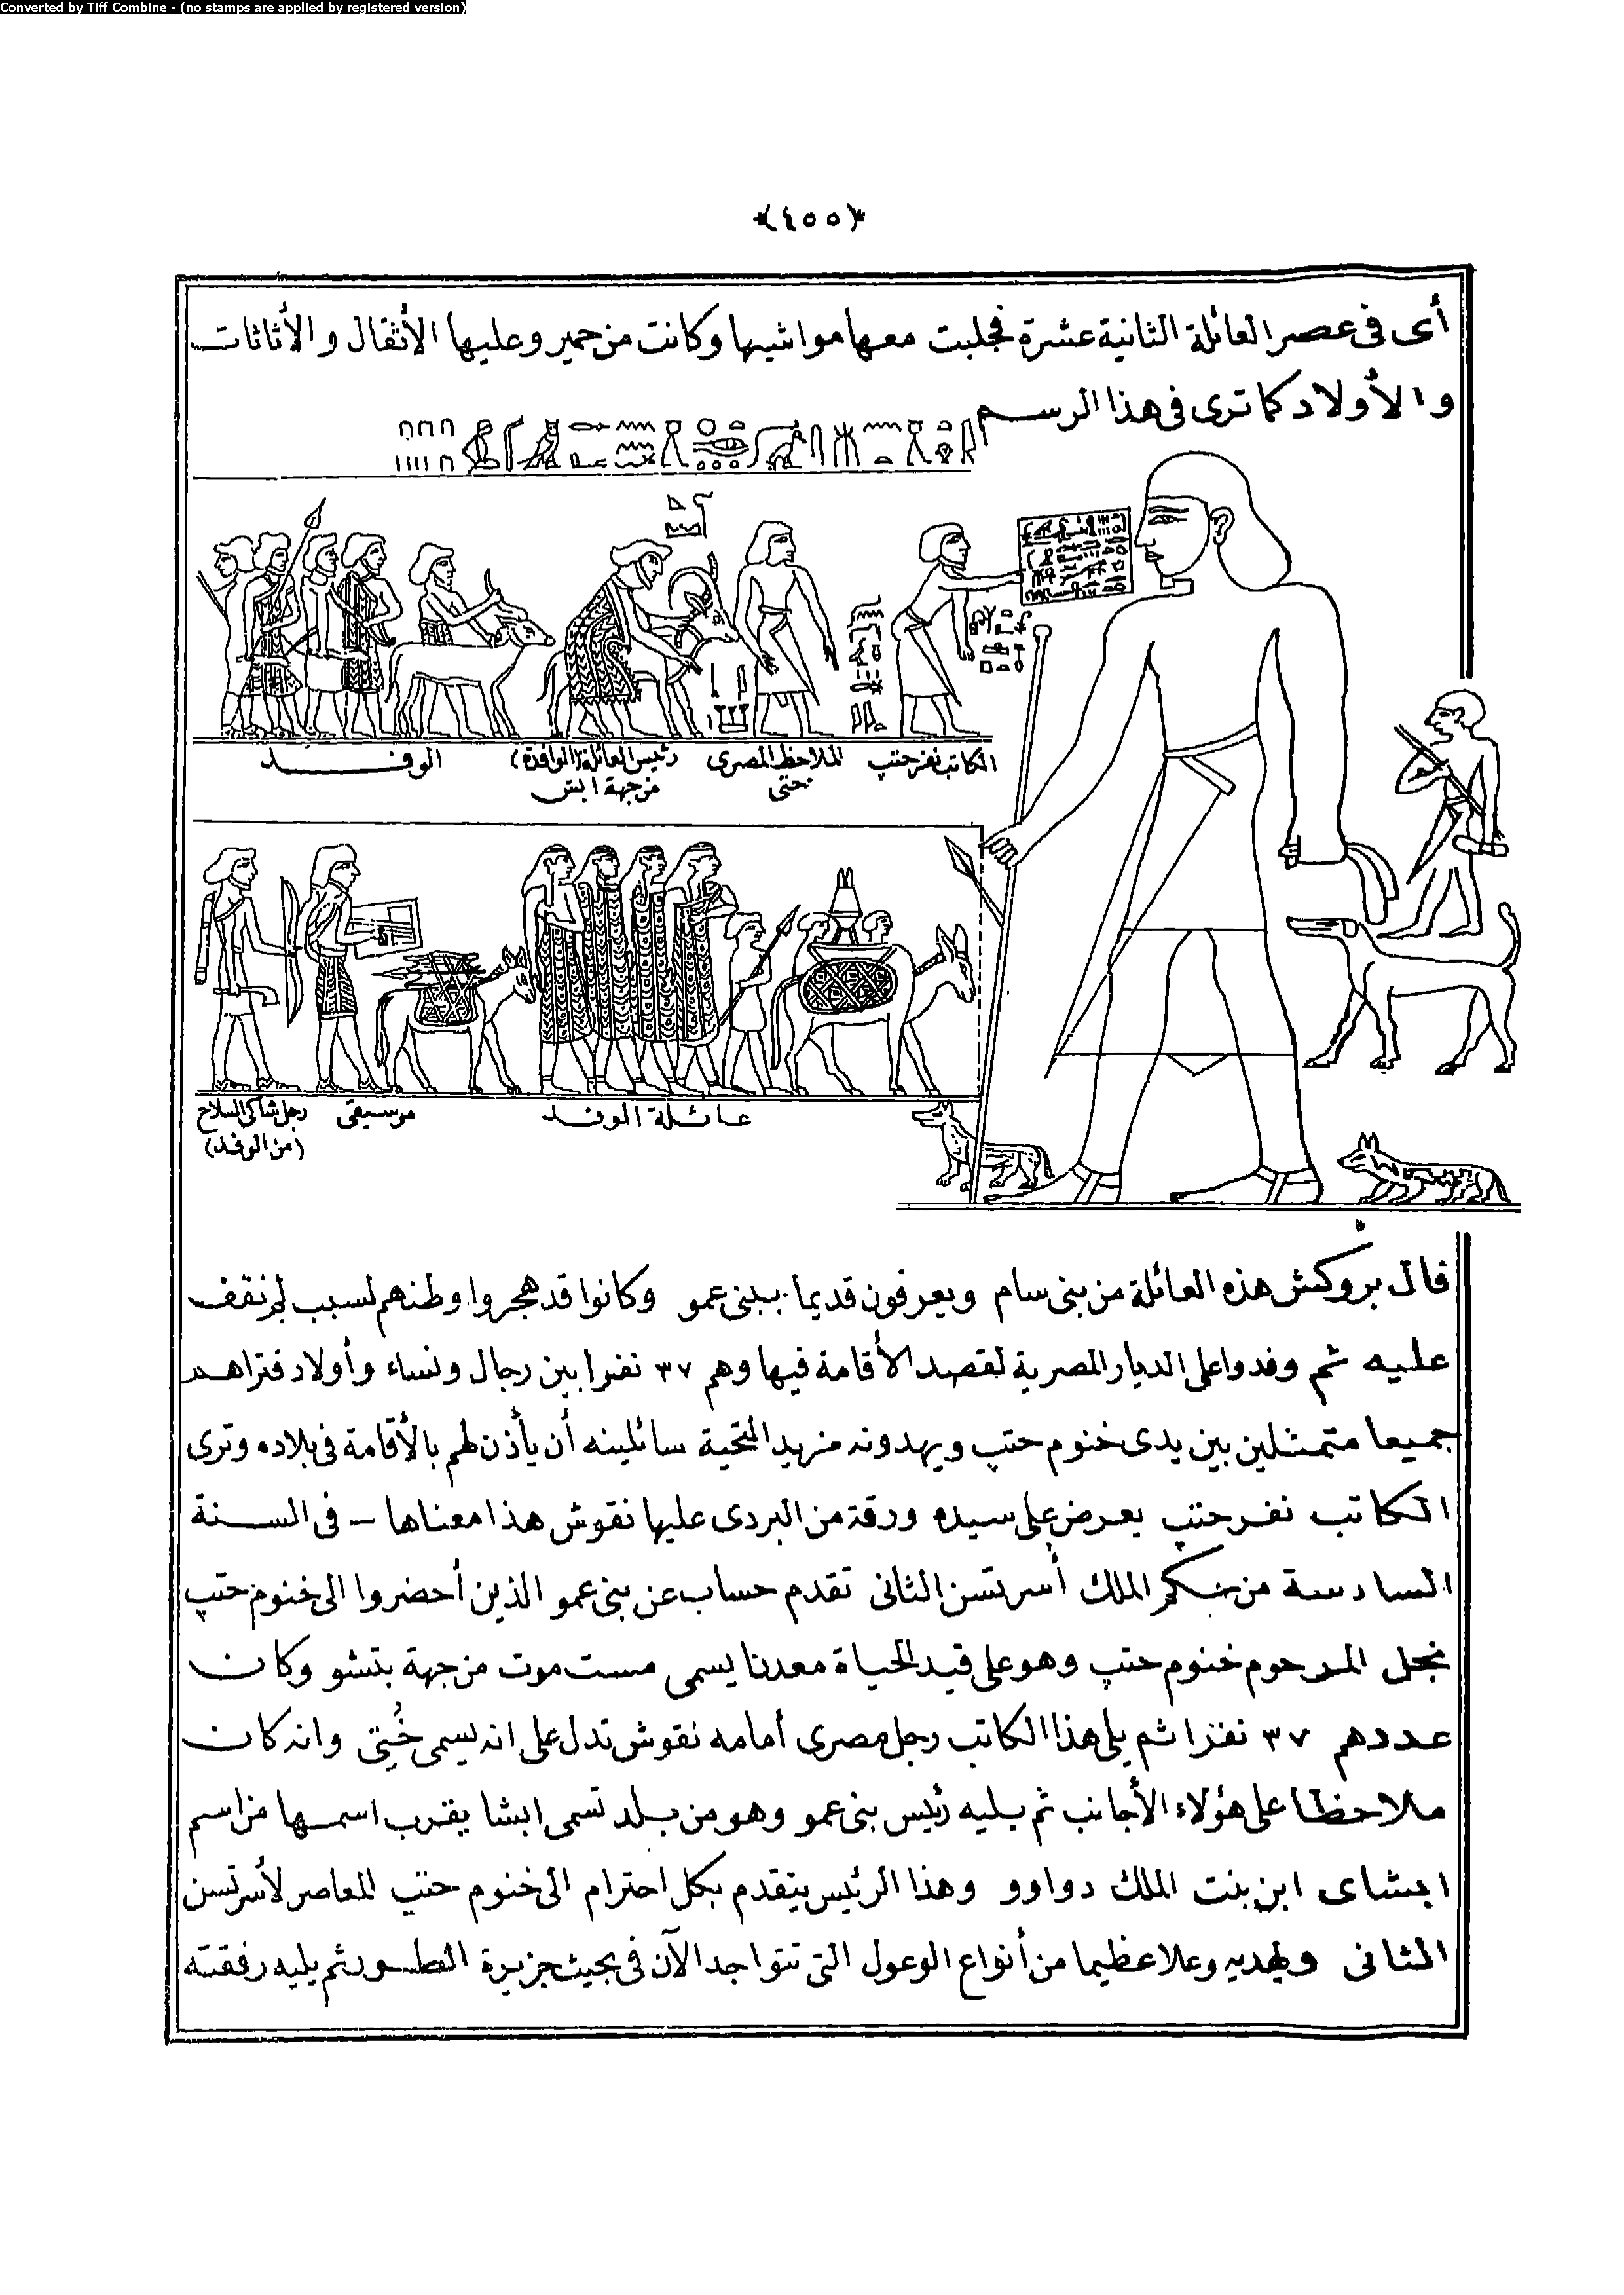 Converted by Tiff Combine - (no stamps are applied by registered version)
﴿٤٥٥﴾
أى فى عصر العائلة الثانية عشرة فجلبت معها مواشيها وكانت من حمير وعليها الأثقال والأثاثات
والأولاد كما ترى فى هذا الرسم
الكاتب نفرحتب
الملاحظ المصرى
ختى
رئيس العائلة (الوافدة)
من جهة ابش
الوفد
عائلة الوفد
موسيقى
رجل شاكى السلاح
(من الوفد)
قال بروكش هذه العائلة من بنى سام ويعرفون قديما ببنى عمو وكانوا قد هجروا وطنهم لسبب لم نقف
عليه ثم وفدوا على الديار المصرية لقصد الأقامة فيها وهم ٣٧ نفرا بين رجال ونساء وأولاد فتراهم
جميعا متمثلين بين يدى خنوم حتب ويهدونه مزيد التحية سائلينه أن يأذن لهم بالأقامة فى بلاده وترى
الكاتب نفرحتب يعرض على سيده ورقة من البردى عليها نقوش هذا معناها – فى السنة
السادسة من حكم الملك أسرتسن الثانى تقدم حساب عن بنى عمو الذين أحضروا الى خنوم حتب
نجل المرحوم خنوم حتب وهو على قيد الحياة معدنا يسمى مست موت من جهة بتشو وكان
عددهم ٣٧ نفرا ثم يلى هذا الكاتب رجل مصرى أمامه نقوش تدل على انه يسمى خُتِى وانه كان
ملاحظا على هؤلاء الأجانب ثم يليه رئيس بنى عمو وهو من بلد تسمى ابشا يقرب اسمها من اسم
ابشاى ابن بنت الملك دواوو وهذا الرئيس يتقدم بكل احترام الى خنوم حتب المعاصر لأسرتسن
الثانى ويهديه وعلا عظيما من أنواع الوعول التى تتواجد الآن فى بحيث جزيرة الطور ثم يليه رفقته